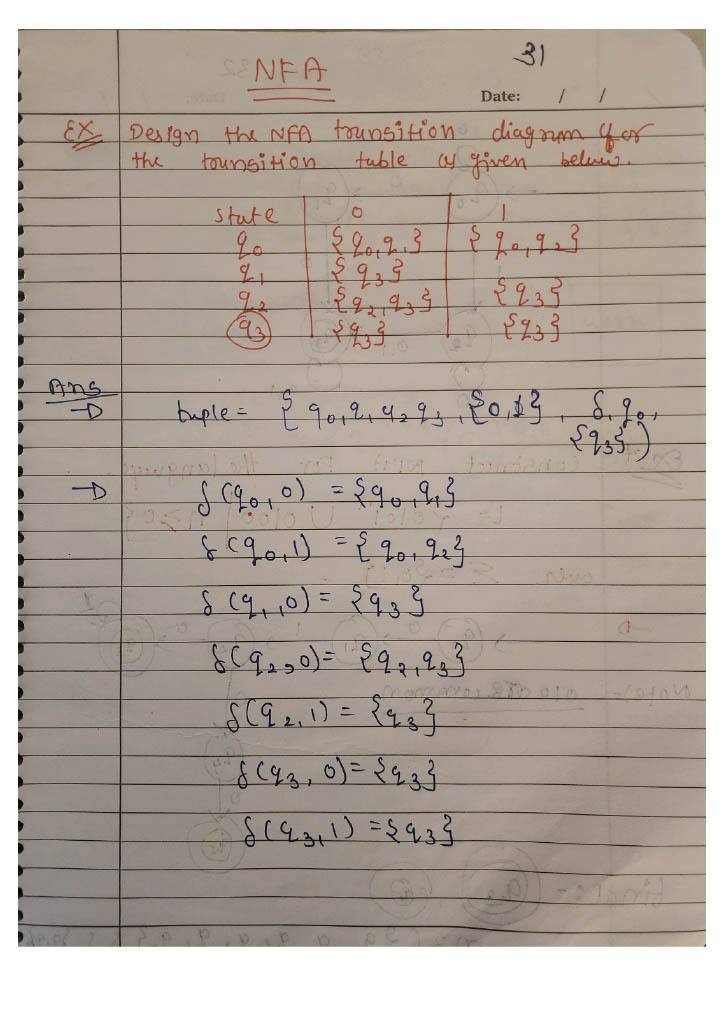 31
NFA
Date: / /
EX Design the NFA transition diagram for
the transition table as given below.
state 0 1
q0 {q0,q1} {q0,q2}
q1 {q3}
q2 {q2,q3} {q3}
q3 {q3} {q3}
Ans
→ tuple = { q0,q1,q2 q3 ,{0,1} , δ, q0,
{q3})
→ δ(q0,0) = {q0,q1}
δ(q0,1) = {q0,q2}
δ(q1,0) = {q3}
δ(q2,0) = {q2,q3}
δ(q2,1) = {q3}
δ(q3,0) = {q3}
δ(q3,1) = {q3}